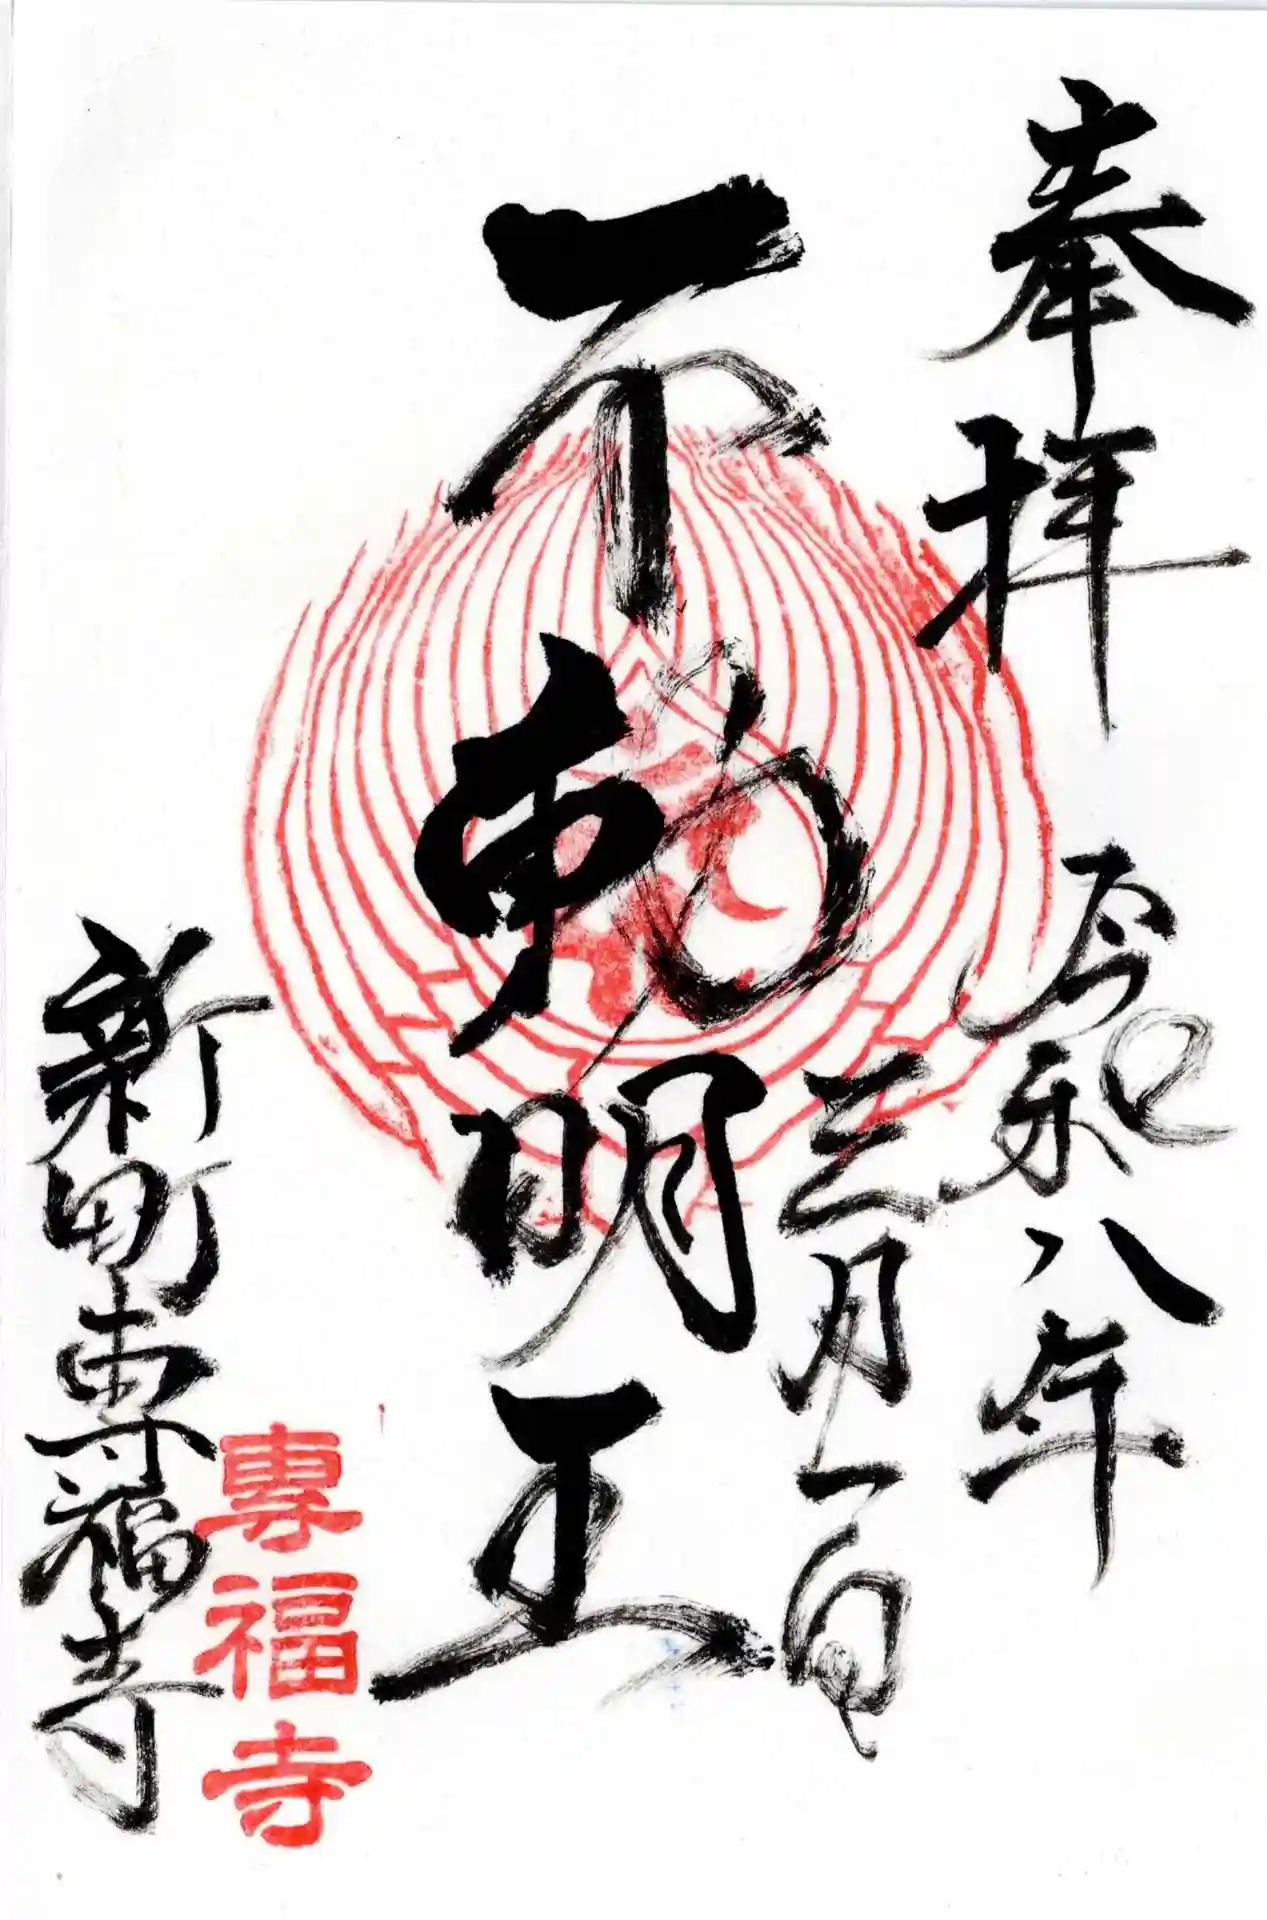 奉拝
令和八年
三月一日
不動明王
新町専福寺
專福寺